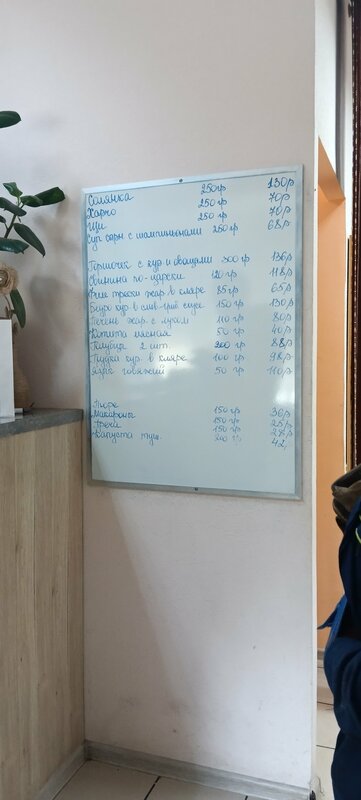 Солянка 250гр 130р
Харчо 250 гр 70р
Щи 250 гр 70р
Суп сырн с шампиньонами 250 гр 68р
Горшочек с кур. и овощами 300 гр 136р
Свинина по-царски 120 гр 118р
Филе трески жар. в кляре 85 гр 65р
Бедро кур. в слив-гриб соусе 150 гр 130р
Печень жар. с луком 110 гр 80р
Котлета мясная 50 гр 40р
Голубцы 2 шт. 200 гр 88р
Грудка кур. в кляре 100 гр 98р
Язык говяжий 50 гр 110р
Пюре 150 гр 30р
Макароны 150 гр 25р
Гречка 150 гр 28р
Капуста туш. 200 гр 42